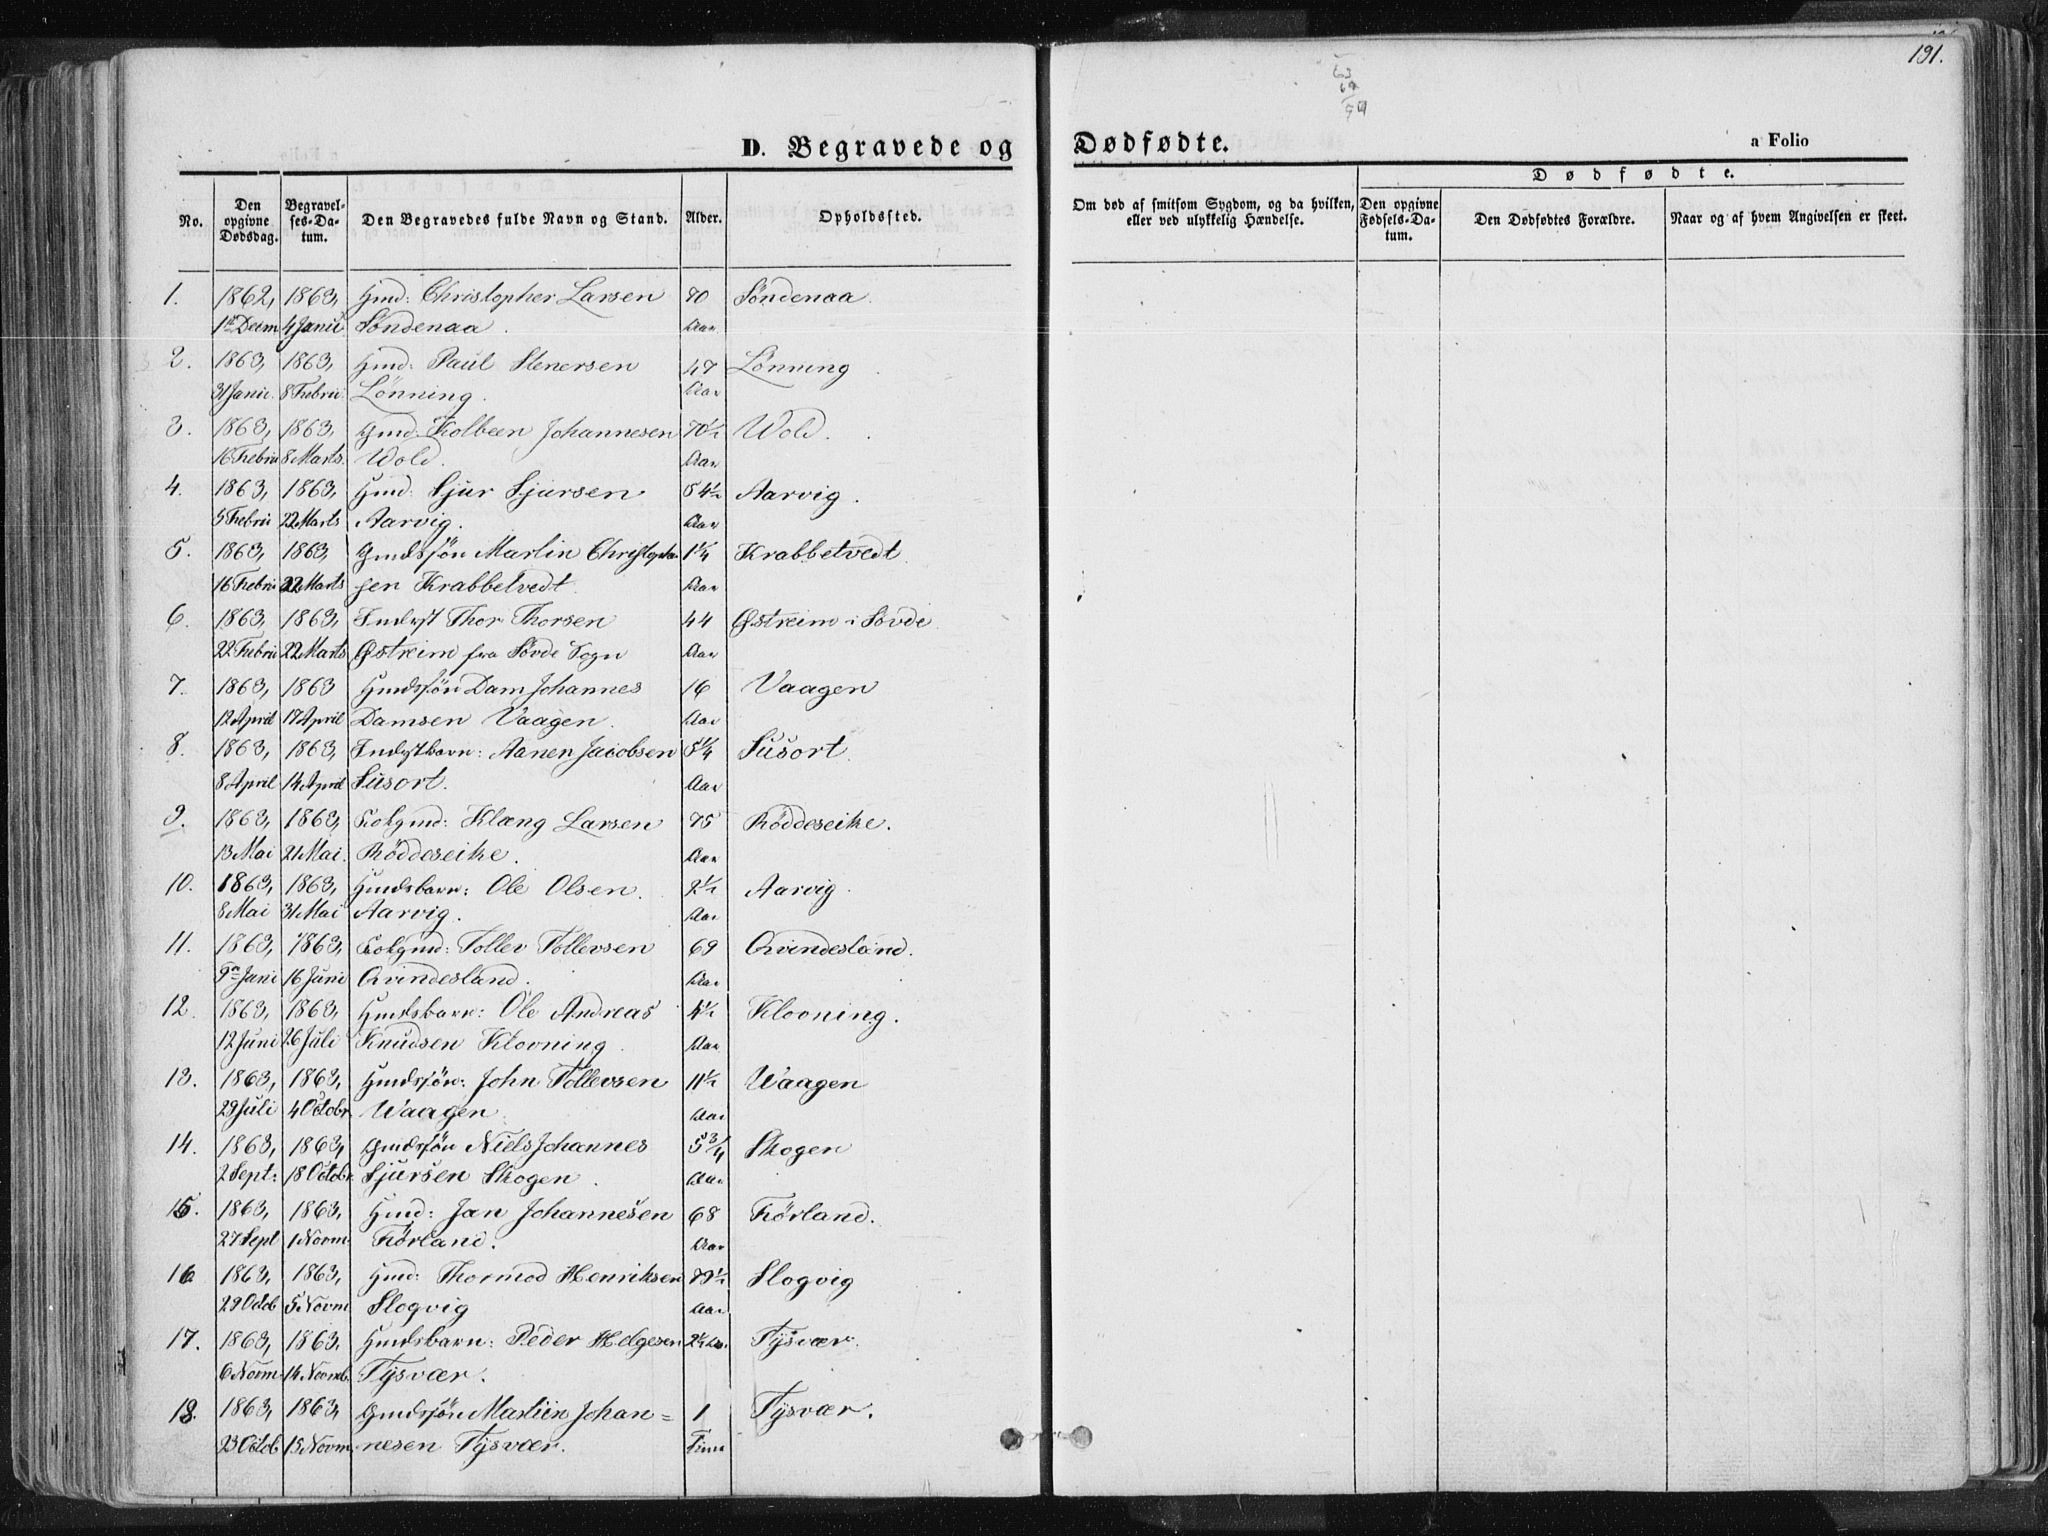 191.
D. Begravede og Dødfødte.
a Folio
Dødfødte.
No.
Den opgivne Dødsdag.
Begravelses-Datum.
Den Begravedes fulde Navn og Stand.
Alder.
Opholdssted.
Om død af smitsom Sygdom, og da hvilken, eller ved ulykkelig Hændelse.
Den opgivne Fødsels-Datum.
Den Dødfødtes Forældre.
Naar og af hvem Angivelsen er skeet.
1. 1862, 1863, Gmd: Christopher Larsen 80 Söndenaa.
1st Decm 4 Janü Söndenaa. Aar
2. 1863, 1863, Gmd: Paul Stenersen 47 Lönning.
31 Janü. 8 Febrü. Lönning. Aar
3. 1863, 1863, Gmd: Kolbeen Johannesen 70½ Wold.
16 Febrü 8 Marts. Wold. Aar
4. 1863, 1863, Hmd: Sjur Sjursen 54½ Aarvig.
5 Febrü 22 Marts Aarvig. Aar
5. 1863, 1863, Gmdssön Martin Christopher 1¼ Krabbetvedt
16 Febrü 22 Marts sen Krabbetvedt. Aar
6. 1863, 1863, Indyst Thor Thorsen 44 Østreim i Sövde
22 Febrü 22 Marts Østreim fra Sövde Sogn Aar
7. 1863, 1863 Hmdssön Dam Johannes 16 Vaagen
12 April 17 April Damsen Vaagen. Aar
8. 1863, 1863, Indystbarn: Aanen Jacobsen 5¼ Süsort
8 April 14 April Süsort. Aar
9. 1863, 1863, Folgmd: Klæng Larsen 75 Röddeseike.
13 Mai 21 Mai. Röddeseike. Aar
10. 1863, 1863, Hmdsbarn: Ole Olsen. 2½ Aarvig.
8 Mai 31 Mai Aarvig. Aar
11. 1863, 1863, Folgmd: Tollev Tollevsen 69 Qvindesland.
9n Juni 16 Juni Qvindesland. Aar
12. 1863, 1863, Hmdsbarn: Ole Andreas 4½ Klovning.
12 Juni 26 Juli Knudsen Klovning. Aar
13. 1863, 1863, Hmdssön: John Tollevsen 11½ Waagen
29 Juli 4 Octobr. Waagen. Aar
14. 1863, 1863, Gmdssön Niels Johannes 5¾ Skogen
2 Sept: 18 Octobr. Sjursen Skogen. Aar
15. 1863, 1863, Hmd: Jan Johannesen 68 Förland.
27 Sept 1 Novm. Förland. Aar
16 1863, 1863, Hmd: Thormod Henriksen 89½ Slogvig
29 Octob 5 Novm Slogvig Aar
17. 1863, 1863. Hmdsbarn: Peder Helgesen 2½ Aar. Tysvær.
6 Novm 14 Novmb. Tysvær.
18. 1863, 1863, Gmdssön Martin Johan= 1 Tysvær.
23 Octob 15 Novm. nesen Tysvær. Time